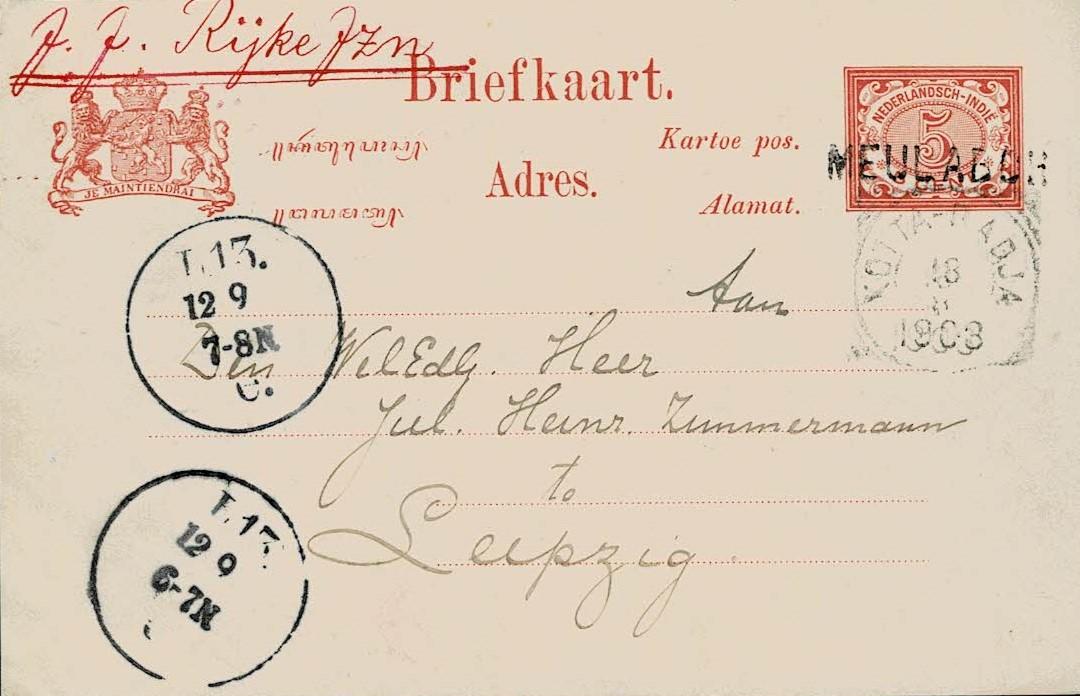 J. J. Rijke Jzn
Briefkaart.
Kartoe pos.
Adres.
Alamat.
JE MAINTIENDRAI
NEDERLANDSCH-INDIË
5
MEULABOH
KOTTA-RADJA
18
8
1903
L 13.
12 9
7-8N
C.
Aan
Den WelEdg. Heer
Jul. Heinr. Zimmermann
to
Leipzig.
L 13.
12 9
6-7N